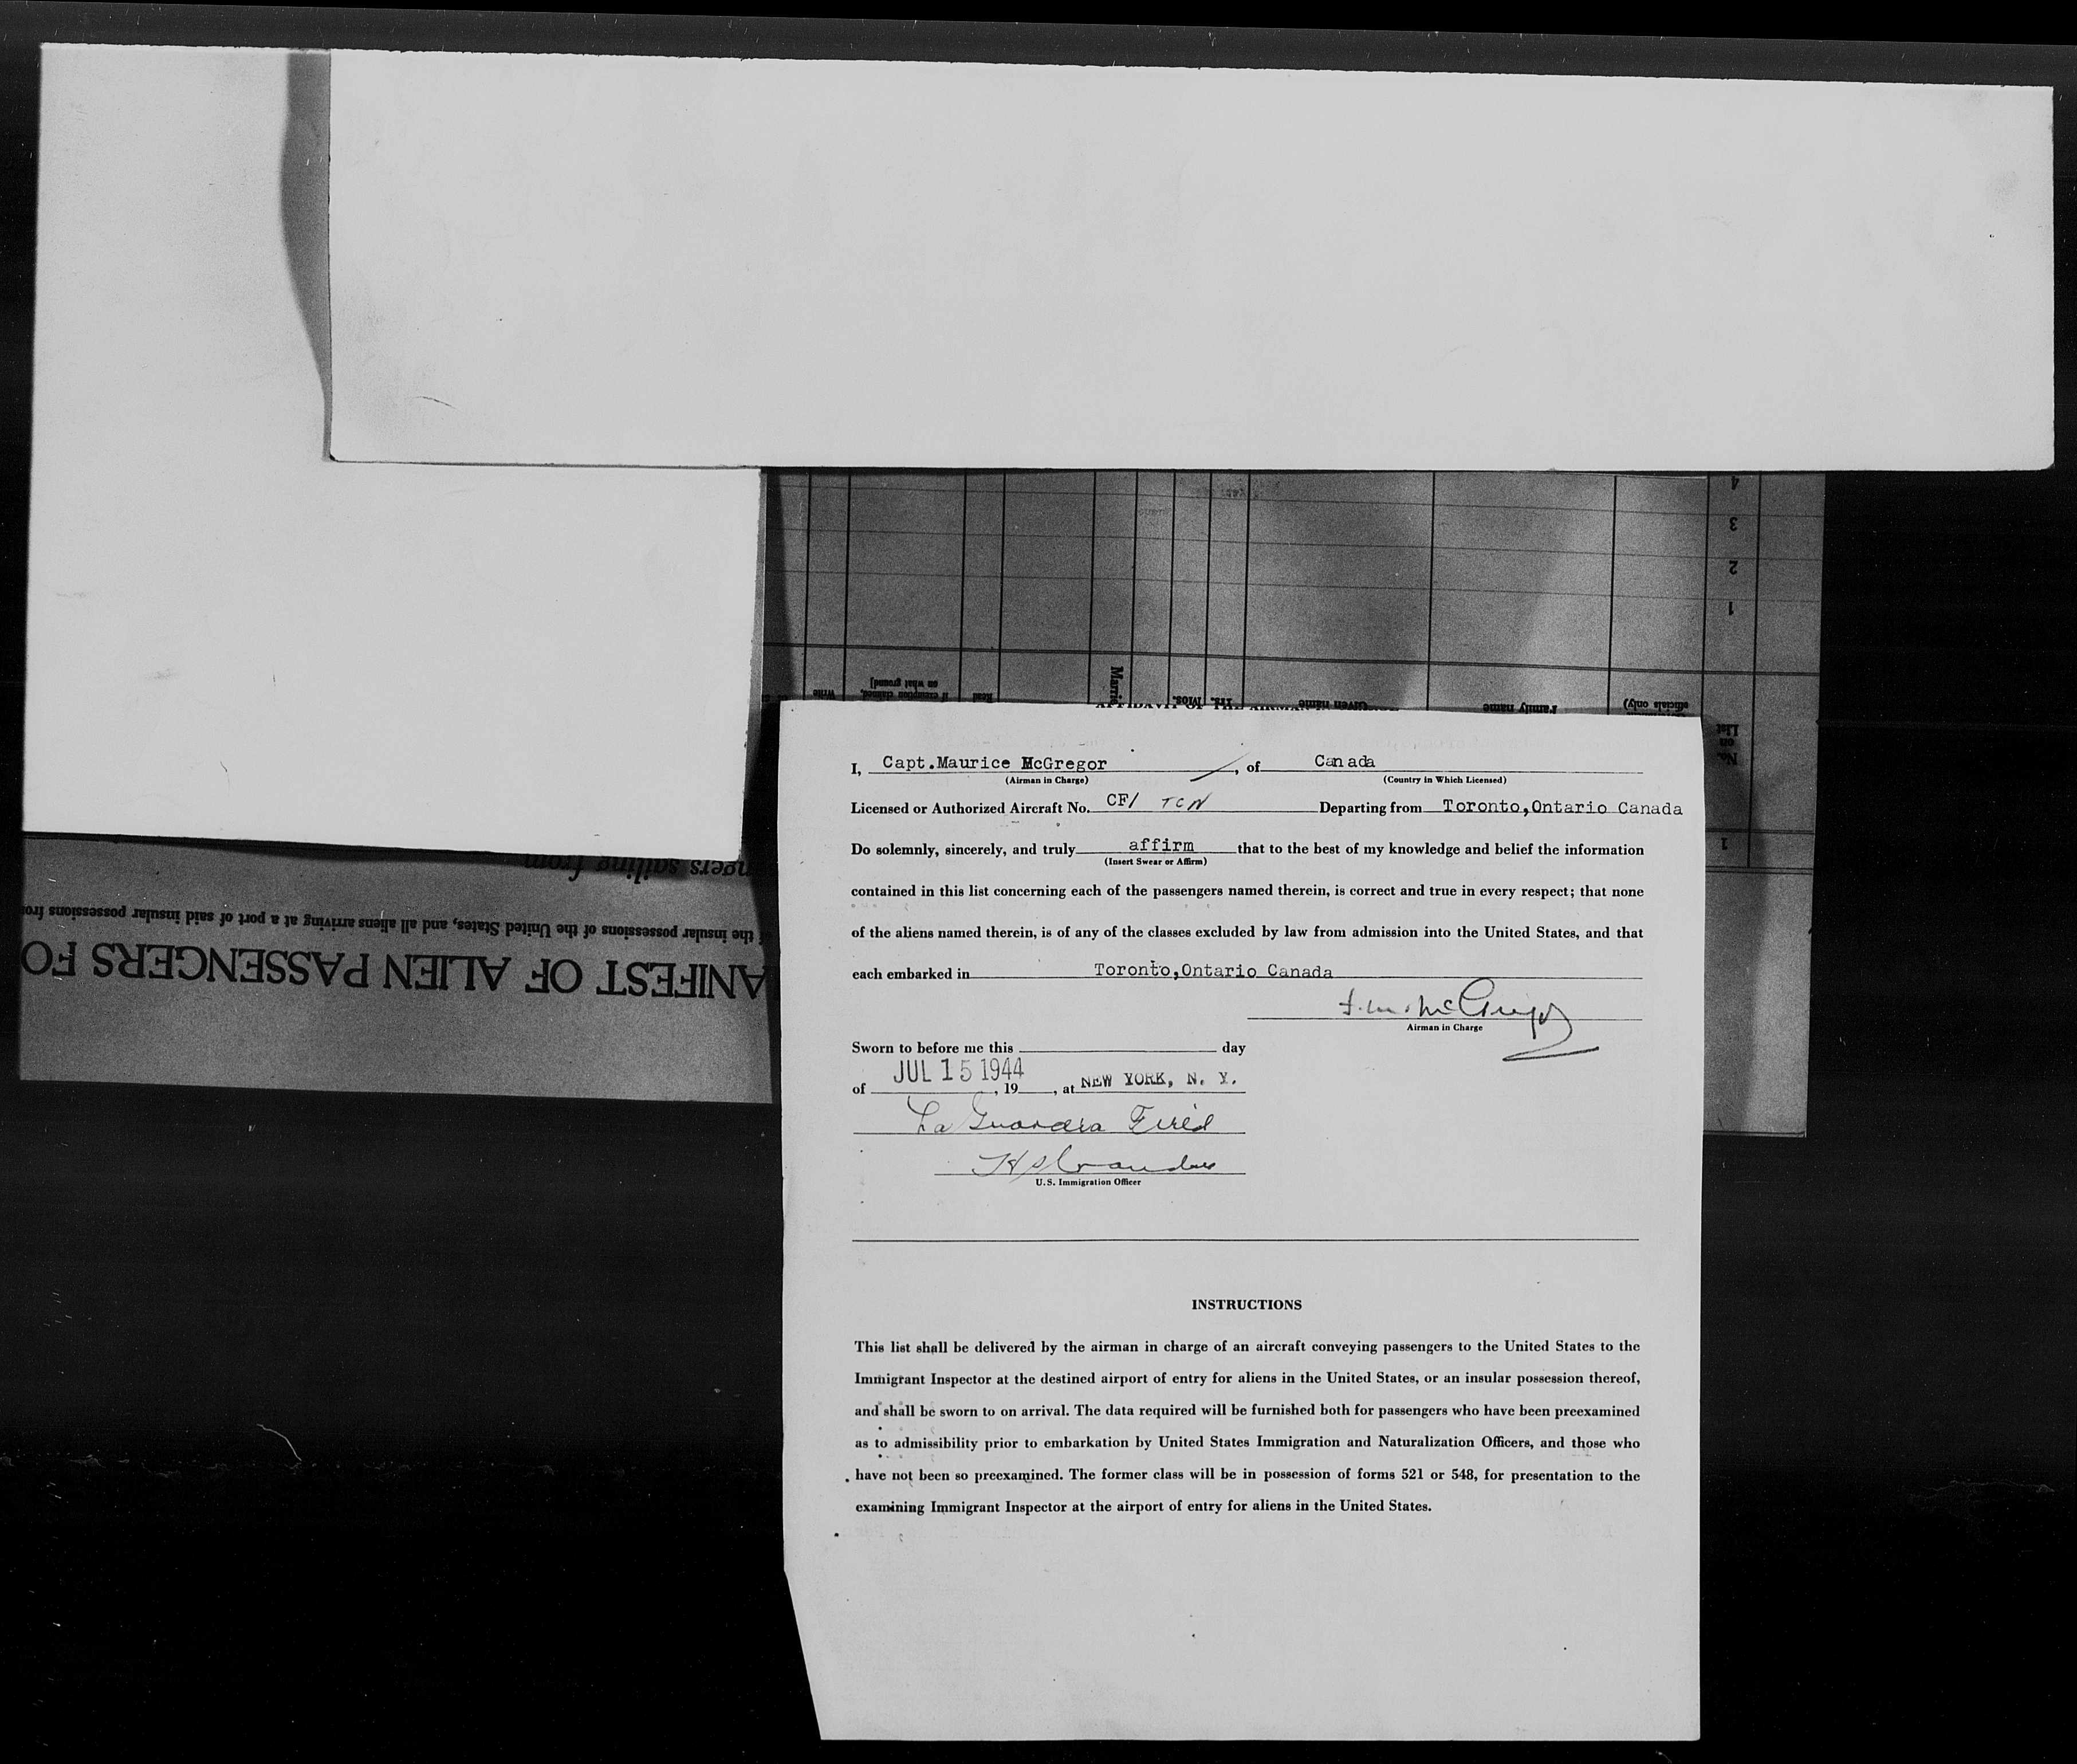 4
3
2
1
Marri
Write
on what ground]
if exemption claimed,
Read
Yrs. Mos.
Given name
Family name
officials only)
No.
on
List
1
AFFIDAVIT OF THE AIRMAN IN
I, Capt.Maurice McGregor , of Canada
(Airman in Charge) (Country in Which Licensed)
Licensed or Authorized Aircraft No. CF/ TCN Departing from Toronto,Ontario Canada
Do solemnly, sincerely, and truly affirm that to the best of my knowledge and belief the information
(Insert Swear or Affirm)
contained in this list concerning each of the passengers named therein, is correct and true in every respect; that none
of the aliens named therein, is of any of the classes excluded by law from admission into the United States, and that
each embarked in Toronto,Ontario Canada
McGregor
Airman in Charge
Sworn to before me this day
JUL 15 1944
of , 19 , at NEW YORK, N. Y.
La Guardia Field
U.S. Immigration Officer
INSTRUCTIONS
This list shall be delivered by the airman in charge of an aircraft conveying passengers to the United States to the
Immigrant Inspector at the destined airport of entry for aliens in the United States, or an insular possession thereof,
and shall be sworn to on arrival. The data required will be furnished both for passengers who have been preexamined
as to admissibility prior to embarkation by United States Immigration and Naturalization Officers, and those who
have not been so preexamined. The former class will be in possession of forms 521 or 548, for presentation to the
examining Immigrant Inspector at the airport of entry for aliens in the United States.
ANIFEST OF ALIEN PASSENGERS FO
the insular possessions of the United States, and all aliens arriving at a port of said insular possessions from
ngers sailing from